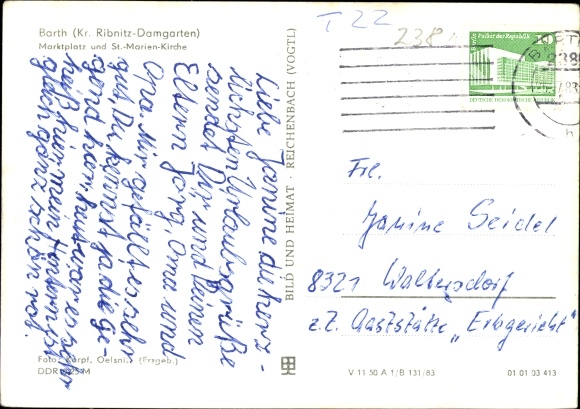 Barth (Kr. Ribnitz-Damgarten)
Marktplatz und St.-Marien-Kirche
T 22
238
Palast der Republik
DEUTSCHE DEMOKRATISCHE REPUBLIK
Liebe Janine die herz-
lichsten Urlaubsgrüße
sendet Dir und Deinen
Eltern Jörg, Oma und
Opa. Mir gefällt es sehr
gut, Du kennst ja die Ge-
gend hier, heute war es sehr
heiß hier mein Hintern ist
gleich ganz schön rot.
BILD UND HEIMAT · REICHENBACH (VOGTL)
Frl.
Janine Seidel
8321 Waltersdorf
z.Z. Gaststätte „Erbgericht"
Foto: Karpf, Oelsnitz (Erzgeb.)
DDR
V 11 50 A 1/B 131/83
01 01 03 413